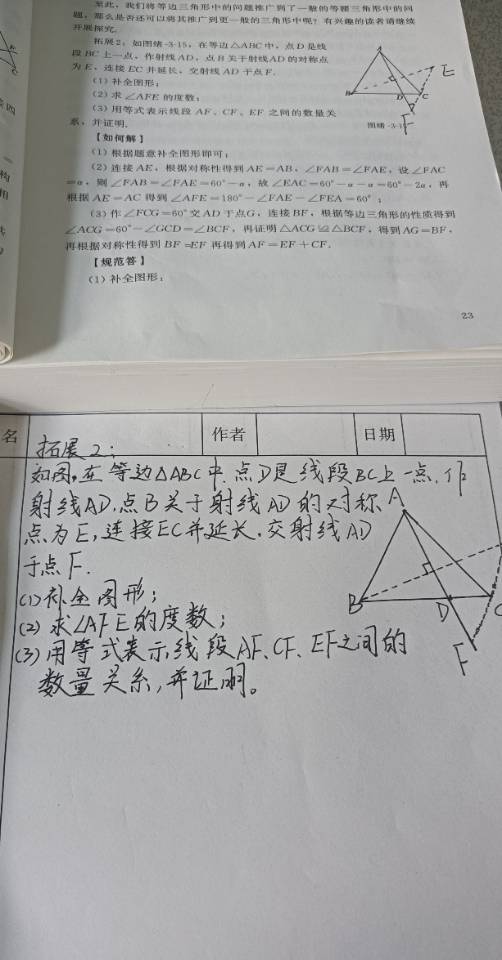 至此，我们将等边三角形中的问题推广到了一般的等腰三角形中的问
题，那么是否还可以将其推广到更一般的三角形中呢？有兴趣的读者请继续
开展探究．
拓展2：如图绪-3-15，在等边△ABC中，点D是线
段BC上一点，作射线AD，点B关于射线AD的对称点
为E，连接EC并延长，交射线AD于点F．
（1）补全图形；
（2）求∠AFE的度数；
（3）用等式表示线段AF、CF、EF之间的数量关
系，并证明．
A
B
D
C
E
F
图绪-3-15
【如何解】
（1）根据题意补全图形即可；
（2）连接AE，根据对称性得到AE=AB，∠FAB=∠FAE，设∠FAC
=α，则∠FAB=∠FAE=60°-α，故∠EAC=60°-α-α=60°-2α，再
根据AE=AC得到∠AFE=180°-∠FAE-∠FEA=60°；
（3）作∠FCG=60°交AD于点G，连接BF，根据等边三角形的性质得到
∠ACG=60°-∠GCD=∠BCF，再证明△ACG≌△BCF，得到AG=BF，
再根据对称性得到BF=EF再得到AF=EF+CF．
【规范答】
（1）补全图形：
23
名
作者
日期
拓展2：
如图，在等边△ABC中，点D是线段BC上一点，作
射线AD，点B关于射线AD的对称
点为E，连接EC并延长，交射线AD
于点F．
(1)补全图形；
(2)求∠AFE的度数；
(3)用等式表示线段AF、CF、EF之间的
数量关系，并证明。
A
B
D
C
F